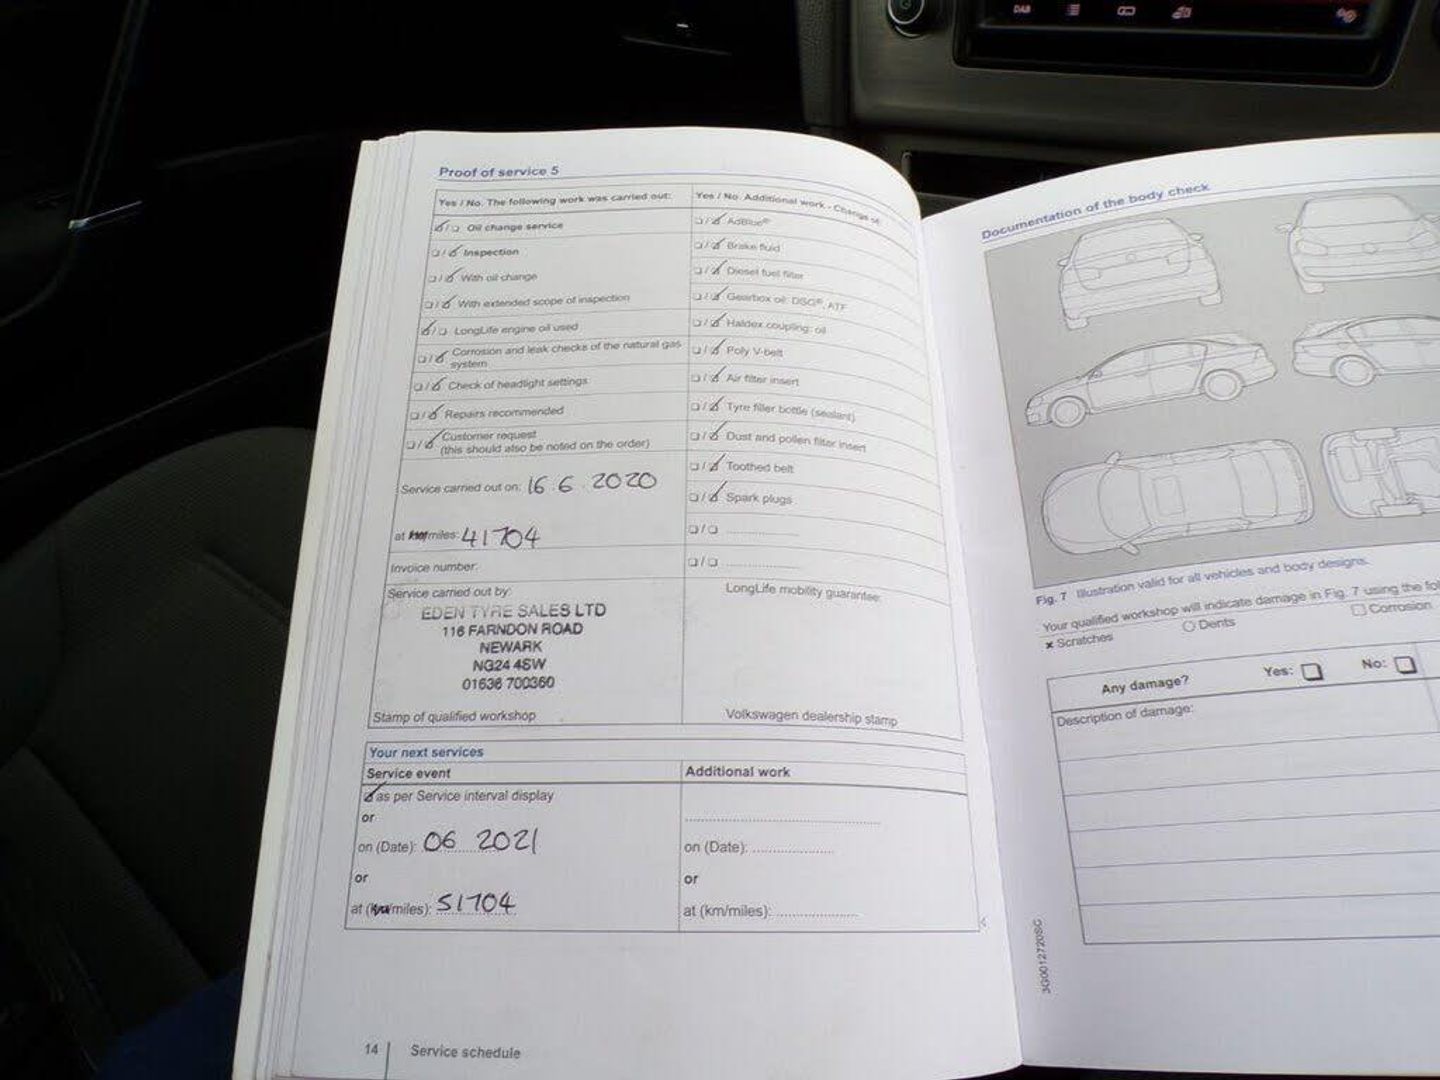 DAB
Proof of service 5
Yes / No. The following work was carried out:
Oil change service
Inspection
With oil change
With extended scope of inspection
LongLife engine oil used
Corrosion and leak checks of the natural gas
system
Check of headlight settings
Repairs recommended
Customer request
(this should also be noted on the order)
Service carried out on: 16.6.2020
at km/miles: 41704
Invoice number:
Service carried out by:
EDEN TYRE SALES LTD
116 FARNDON ROAD
NEWARK
NG24 4SW
01636 700360
Stamp of qualified workshop
Yes / No. Additional work - Change of:
AdBlue®
Brake fluid
Diesel fuel filter
Gearbox oil: DSG®, ATF
Haldex coupling: oil
Poly V-belt
Air filter insert
Tyre filler bottle (sealant)
Dust and pollen filter insert
Toothed belt
Spark plugs
LongLife mobility guarantee:
Volkswagen dealership stamp
Your next services
Service event
as per Service interval display
or
on (Date): 06 2021
or
at (km/miles): 51704
Additional work
on (Date):
or
at (km/miles):
14 Service schedule
Documentation of the body check
Fig. 7 Illustration valid for all vehicles and body designs.
Your qualified workshop will indicate damage in Fig. 7 using the
x Scratches
Dents
Corrosion
Any damage? Yes: No:
Description of damage:
3G0012720SC